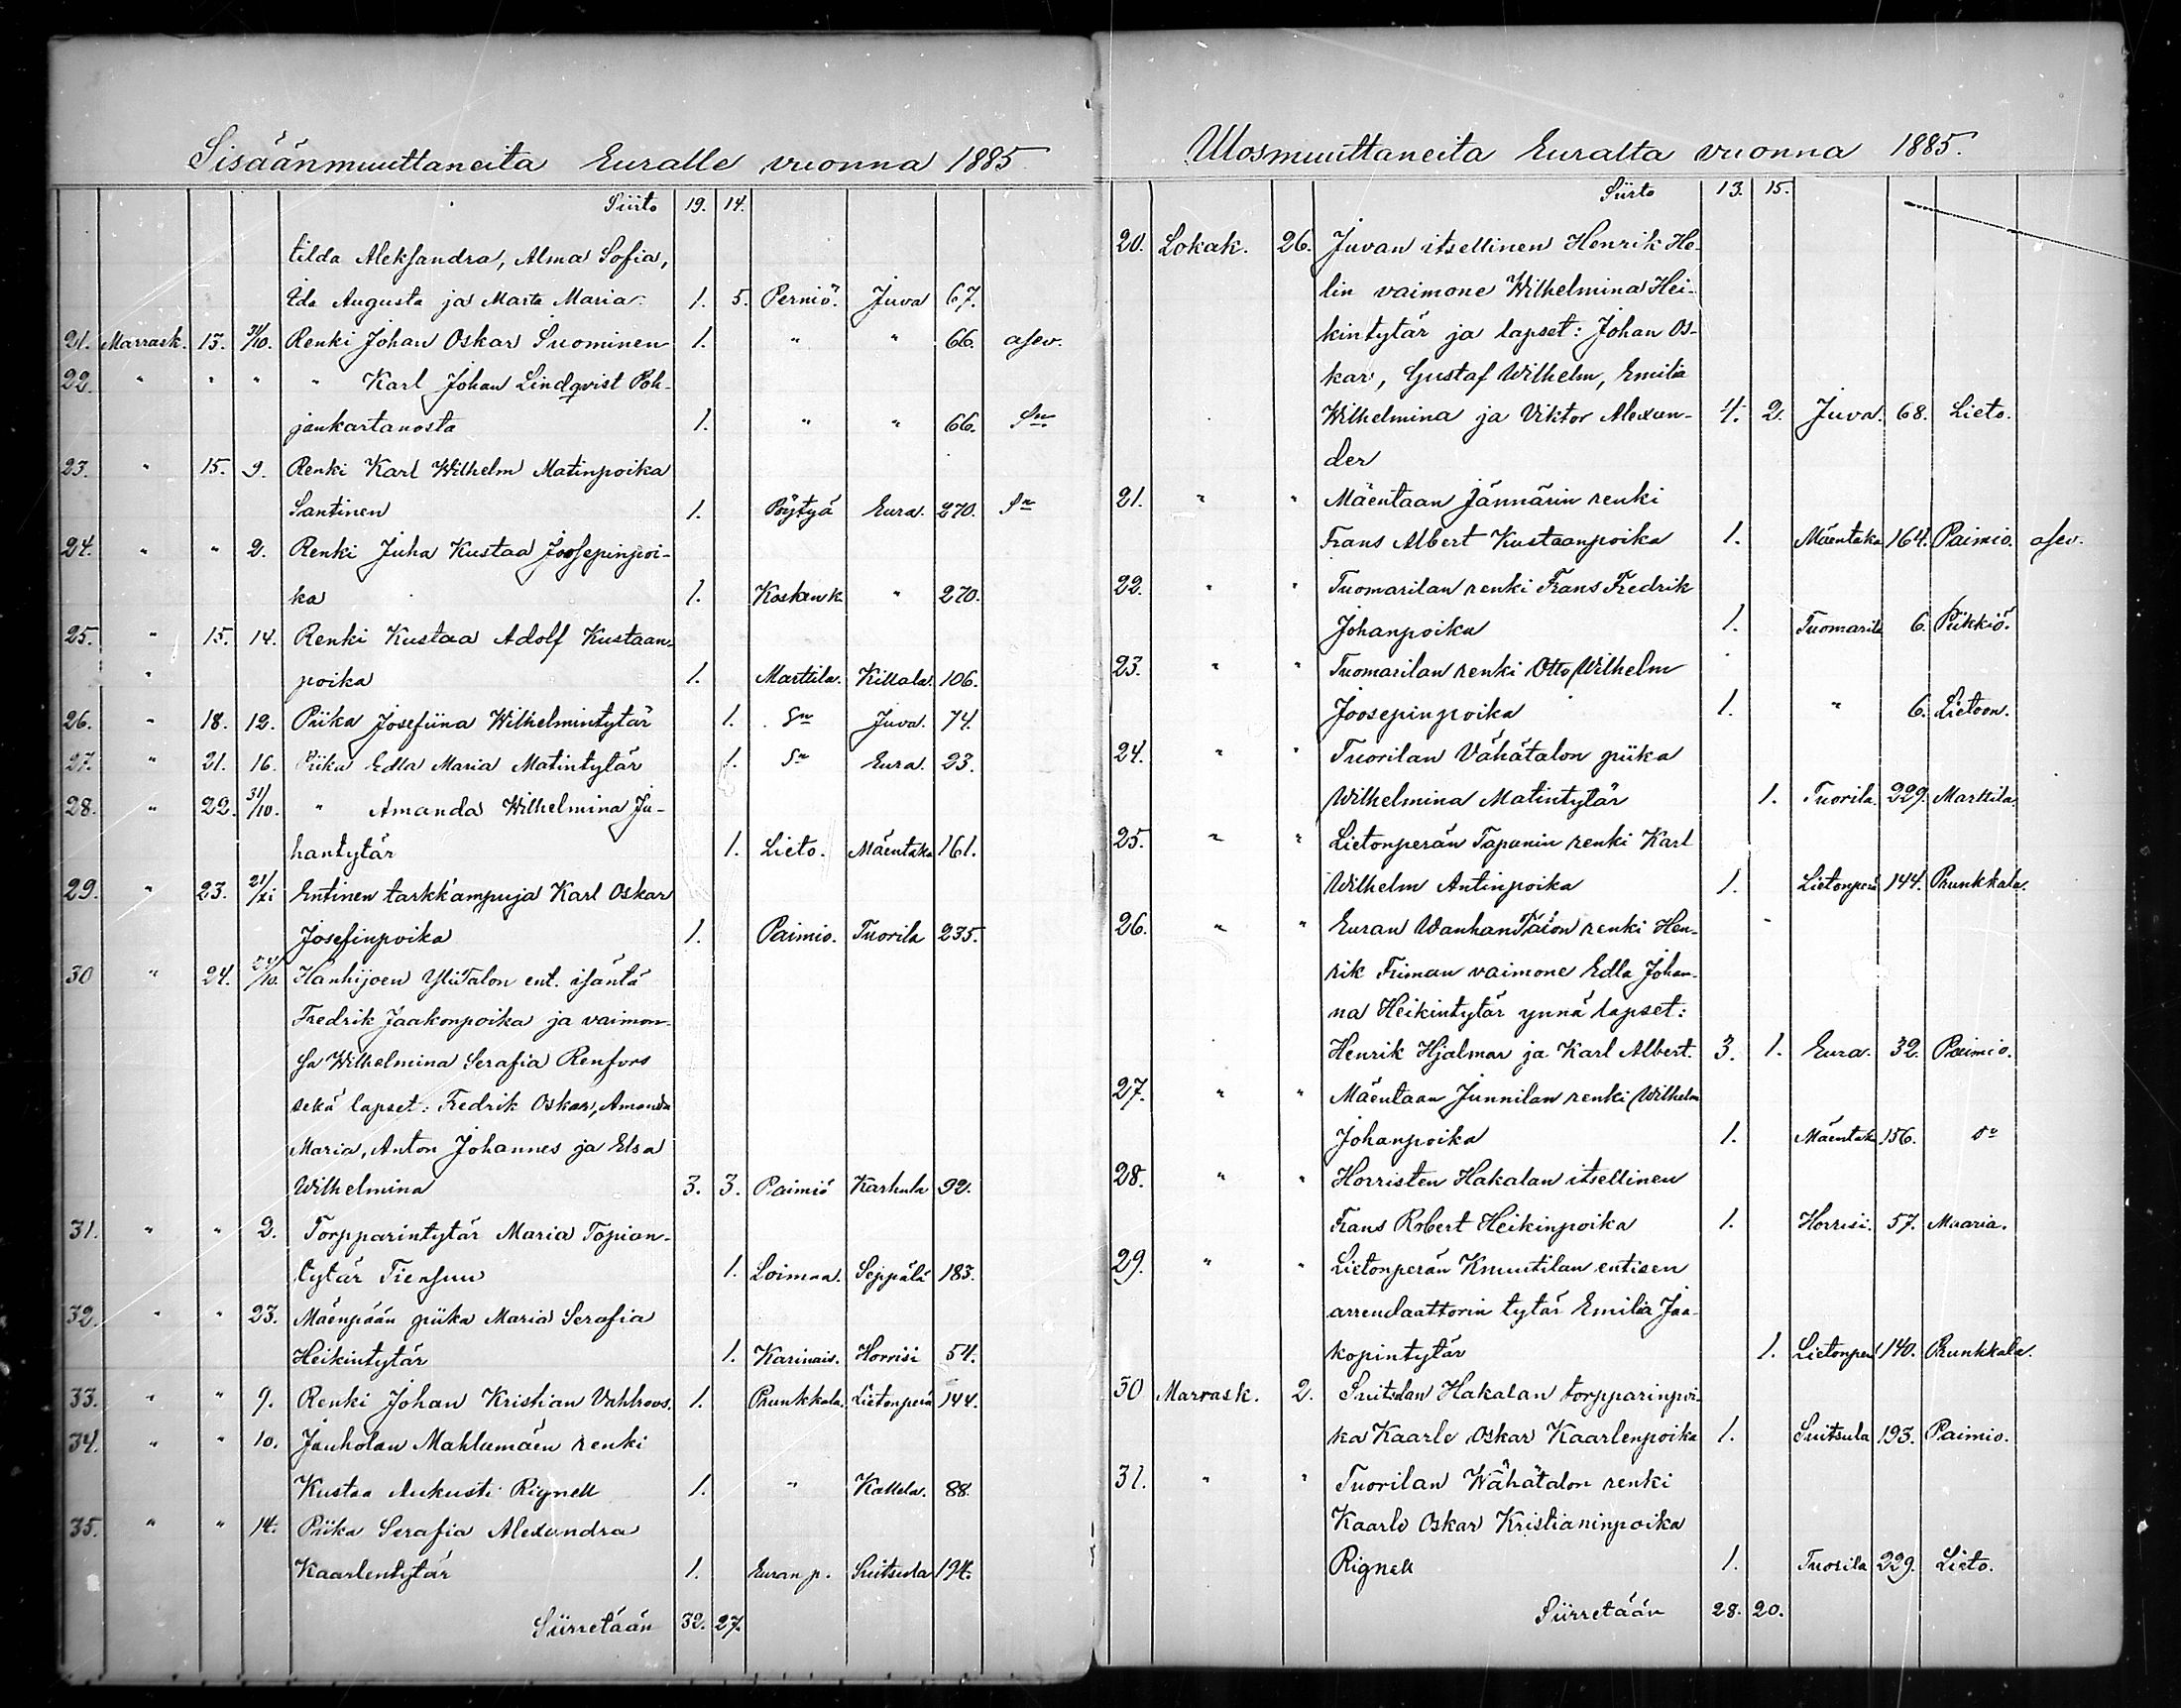 Sisäänmuuttaneita Euralle vuonna 1885
Siirto 19. 14.
tilda Aleksandra, Alma Sofia,
Ida Augusta ja Marta Maria. 1. 5. Perniö. Juva 67.
21. Marrask. 13. 31/10. Renki Johan Oskar Suominen 1. " " 66. asev.
22. " " " " Karl Johan Lindqvist Poh-
jankartanosta 1. " " 66. Sn
23. " 15. 9. Renki Karl Wilhelm Matinpoika
Santinen 1. Pöytyä Eura. 270. Sn
24. " " 2. Renki Juha Kustaa Joosepinpoi-
ka 1. Koskenk " 270.
25. " 15. 14. Renki Kustaa Adolf Kustaan-
" poika 1. Marttila. Killala. 106.
26. " 18. 12. Piika Josefiina Wilhelmintytär 1. Sn Juva. 74.
27. " 21. 16. Piika Edla Maria Matintytär 1. Sn Eura. 23.
28. " 22. 31/10. " Amanda Wilhelmina Ju-
hantytär 1. Lieto. Mäentaka 161.
29. " 23. 21/xi Entinen tarkk'ampuja Karl Oskar
Josefinpoika 1. Paimio. Tuorila 235.
30 " 24. /10. Hanhijoen YliTalon ent. isäntä
Fredrik Jaakonpoika ja vaimon-
sa Wilhelmina Serafia Renfors
sekä lapset: Fredrik Oskar, Amanda
Maria, Anton Johannes ja Elsa
Wilhelmina 3. 3. Paimio Karhula 92.
31. " " 2. Torpparintytär Maria Topian-
tytär Tiensuu 1. Loimaa. Seppälä 183.
32. " " 23. Mäenpään piika Maria Serafia
Heikintytär 1. Karinais. Horrisi 54.
33. " " 9. Renki Johan Kristian Vahlroos. 1. Prunkkala. Lietonperä 144.
34. " " 10. Jauholan Mahlamäen renki
Kustaa Aukusti Rignell 1. " Kallela. 88.
35. " " 14. Piika Serafia Alexandra
Kaarlentytär 1. Euran p. Suitsula 194.
Siirretään 32. 27.
Ulosmuuttaneita Euralta vuonna 1885.
Siirto 13. 15.
20. Lokak. 26. Juvan itsellinen Henrik He-
lin vaimone Wilhelmina Hei-
kintytär ja lapset: Johan Os-
kar, Gustaf Wilhelm, Emilia
Wilhelmina ja Viktor Alexan- 4. 2. Juva. 68. Lieto.
der
21. " " Mäentaan Jännärin renki
Frans Albert Kustaanpoika 1. Mäentaka 164. Paimio. asev.
22. " " Tuomarilan renki Frans Fredrik
Johanpoika 1. Tuomarila 6. Piikkiö.
23. " " Tuomarilan renki Otto Wilhelm
Joosepinpoika 1. " 6. Lietoon.
24. " " Tuorilan Vähätalon piika
Wilhelmina Matintytär 1. Tuorila. 229. Marttila.
25. " " Lietonperän Tapanin renki Karl
Wilhelm Antinpoika 1. Lietonperä 144. Prunkkala.
26. " " Euran WanhanTalon renki Hen-
rik Friman vaimone Edla Johan-
na Heikintytär ynnä lapset:
Henrik Hjalmar ja Karl Albert. 3. 1. Eura. 32. Paimio.
27. " " Mäentaan Junnilan renki Wilhelm
Johanpoika 1. Mäentaka 156. Sn
28. " " Horristen Hakalan itsellinen
Frans Robert Heikinpoika 1. Horrisi. 57. Maaria.
29. " " Lietonperän Knuutilan entisen
arrendaattorin tytär Emilia Jaa-
kopintytär 1. Lietonperä 140. Prunkkala.
30 Marrask. 2. Suitsulan Hakalan torpparinpoi-
ka Kaarlo Oskar Kaarlenpoika 1. Suitsula 193. Paimio.
31. " " Tuorilan Wähätalon renki
Kaarlo Oskar Kristianinpoika
Rignell 1. Tuorila 229. Lieto.
Siirretään 28. 20.